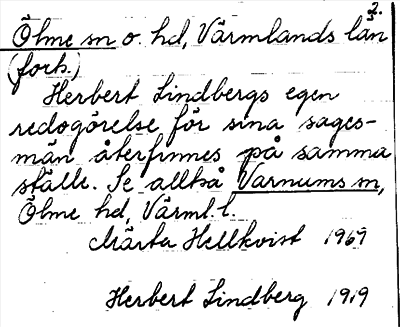 2.
Ölme sn o. hd, Värmlands län
(forts.)
Herbert Lindbergs egen
redogörelse för sina sages-
män återfinnes på samma
ställe. Se alltså Varnums sn,
Ölme hd, Värml. l.
Märta Hellkvist 1969
Herbert Lindberg 1919